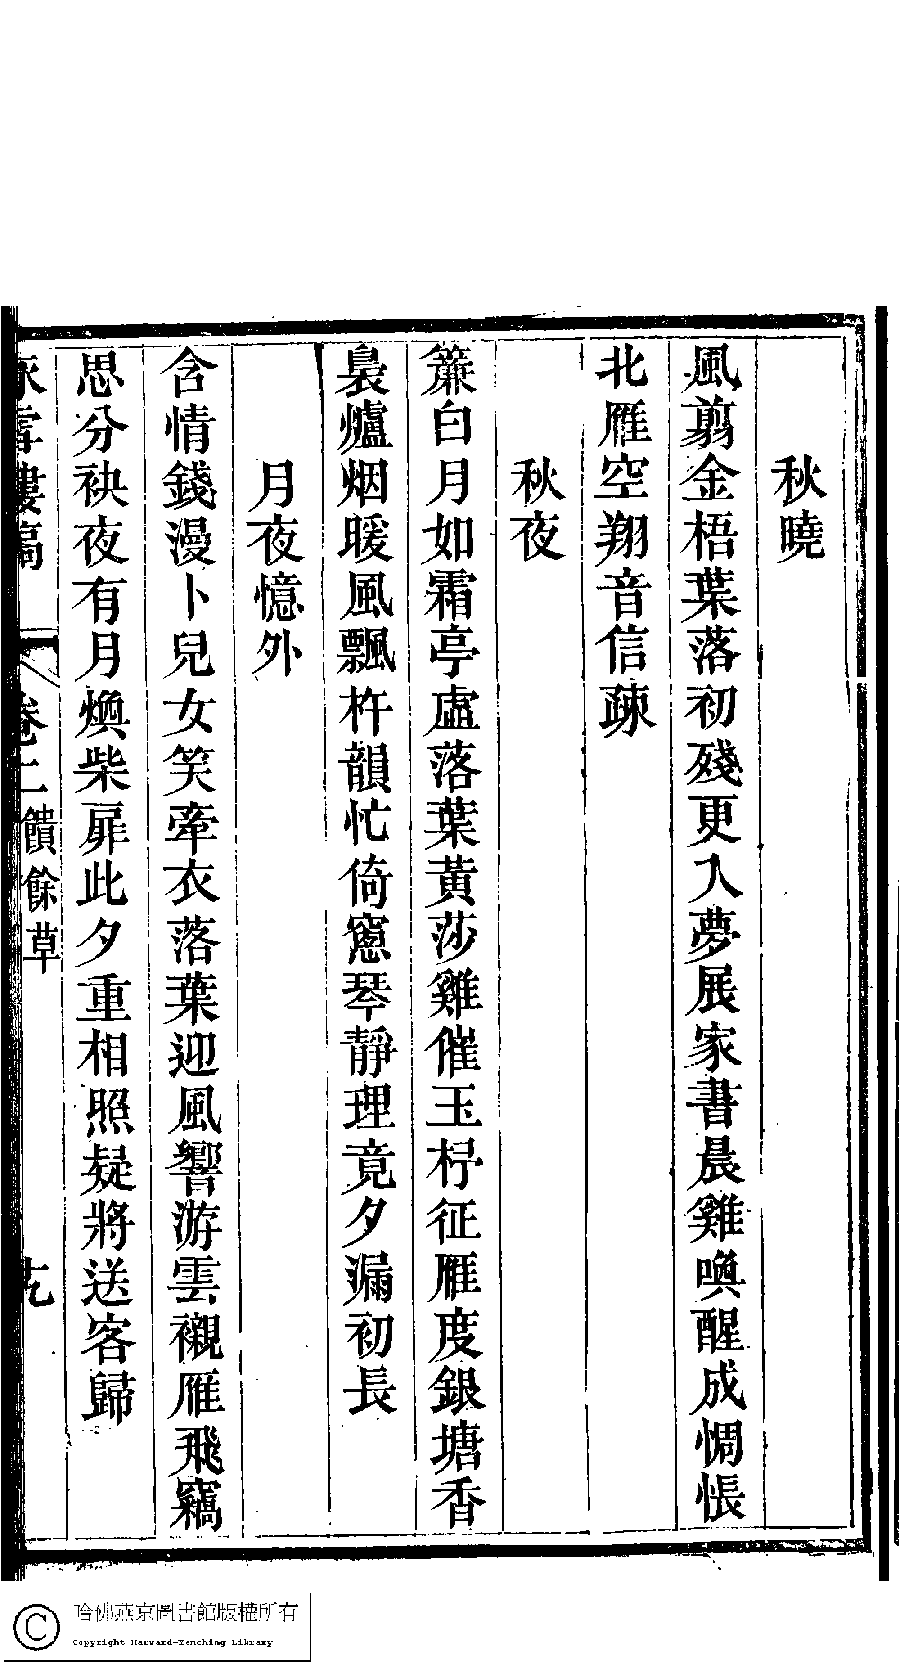 秋曉
風剪金梧葉落初殘更入夢展家書晨雞喚醒成惆悵
北雁空翔音信疎
秋夜
簾白月如霜亭虛落葉黃莎雞催玉杼征雁度銀塘香
裊爐烟暖風飄杵韻忙倚窻琴靜理竟夕漏初長
月夜憶外
含情錢漫卜兒女笑牽衣落葉迎風響游雲襯雁飛竊
思分袂夜有月煥柴扉此夕重相照疑將送客歸
卷二 饋餘草
哈佛燕京圖書館版權所有
Copyright Harvard-Yenching Library